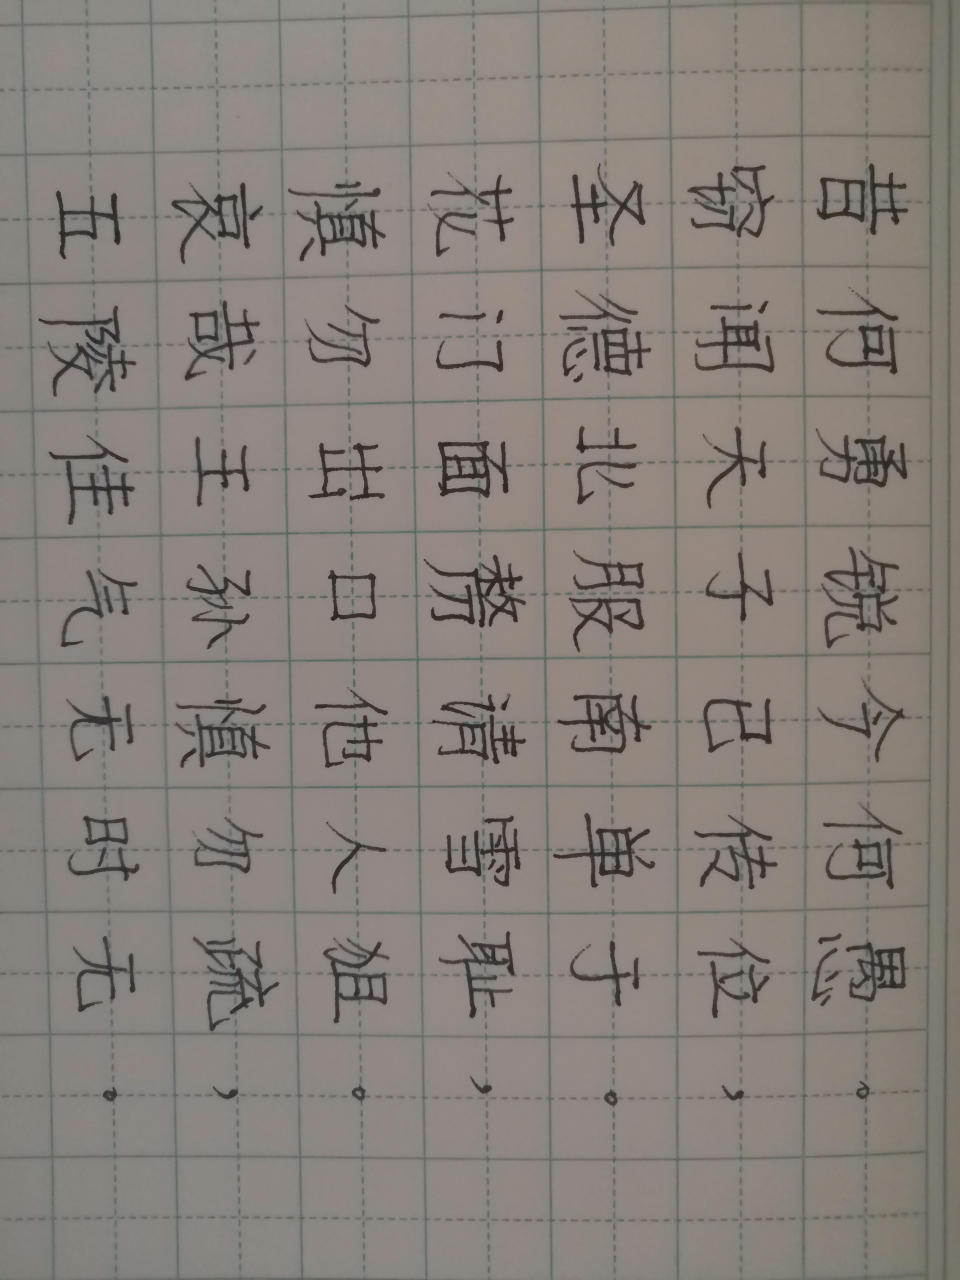 昔何勇锐今何愚。
窃闻天子已传位，
圣德北服南单于。
花门剺面请雪耻，
慎勿出口他人狙。
哀哉王孙慎勿疏，
五陵佳气无时无。